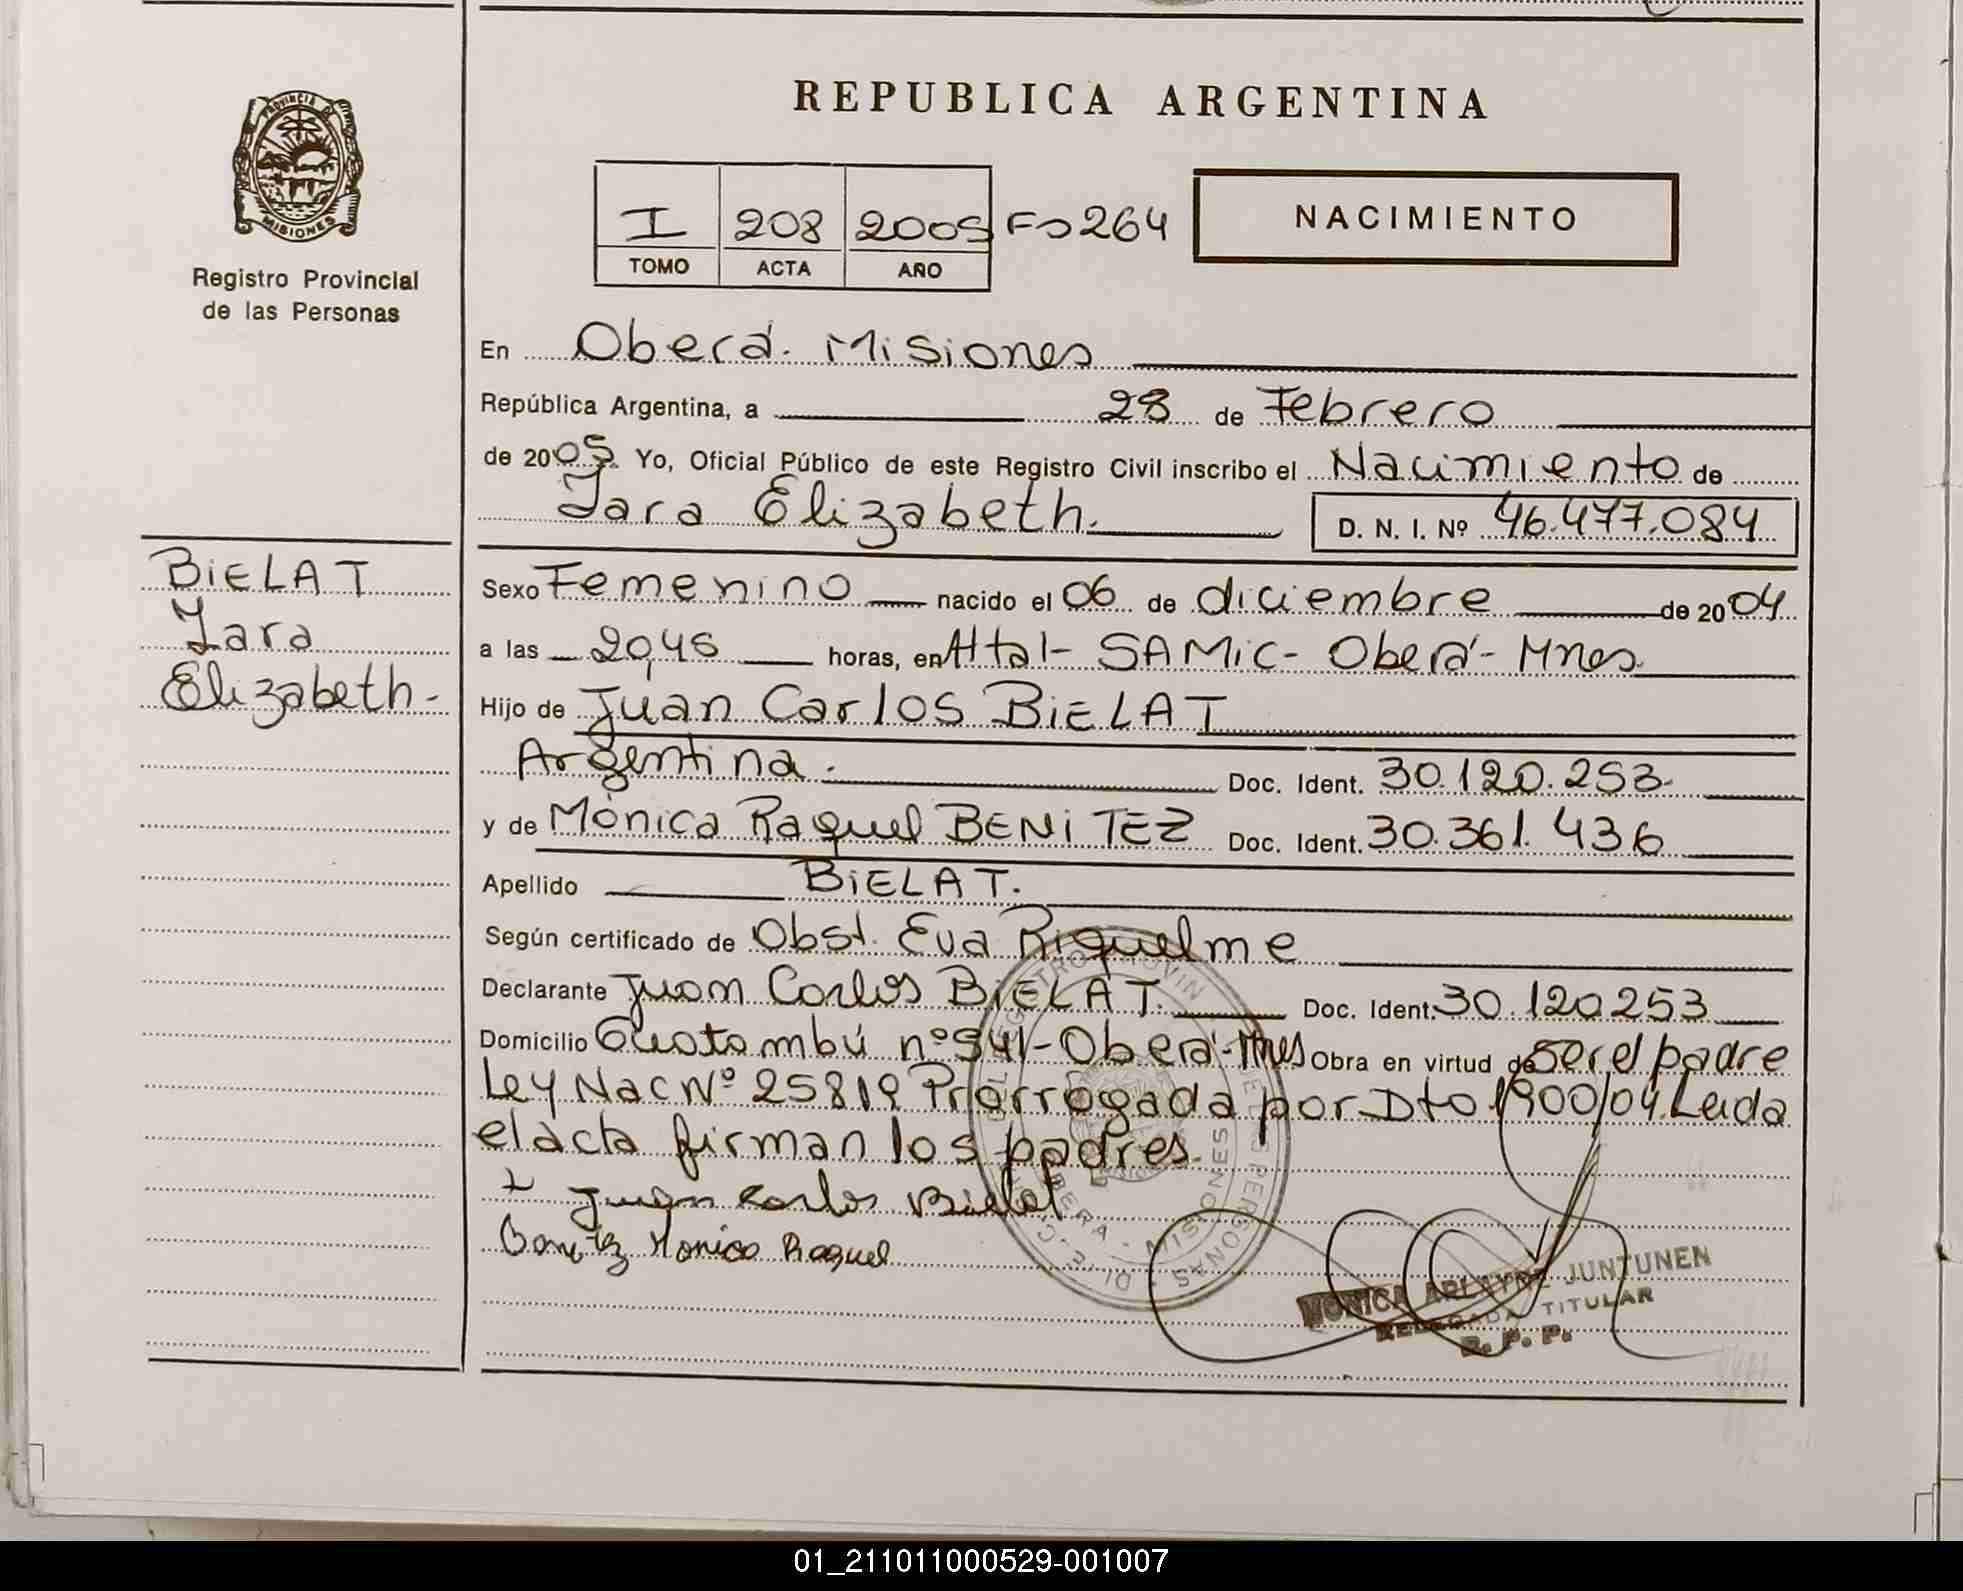 REPUBLICA ARGENTINA
PROVINCIA DE
MISIONES
Registro Provincial
de las Personas
I 208 2005 Fo 264
TOMO ACTA AÑO
NACIMIENTO
En Oberá. Misiones
República Argentina, a 28 de Febrero
de 2005 Yo, Oficial Público de este Registro Civil inscribo el Nacimiento de
Iara Elizabeth.
D. N. I. Nº 46.477.084
BIELAT
Iara
Elizabeth-
Sexo Femenino nacido el 06 de diciembre de 2004
a las 20,45 horas, en Htal- SAMIC- Oberá- Mnes.
Hijo de Juan Carlos BIELAT
Argentina. Doc. Ident. 30.120.253.
y de Mónica Raquel BENITEZ Doc. Ident. 30.361.436
Apellido BIELAT.
Según certificado de Obst. Eva Riquelme
Declarante Juan Carlos BIELAT. Doc. Ident. 30.120253
Domicilio Guatambú nº 941-Oberá-Mnes Obra en virtud de ser el padre
Ley Nac Nº 25819 Prorrogada por Dto 1900/04. Leida
el acta firman los padres.
Juan Carlos Bielat
Benitez Monica Raquel
MISIONES
MONICA ARLAYNE JUNTUNEN
DELEGADA TITULAR
R. P. P.
01_211011000529-001007